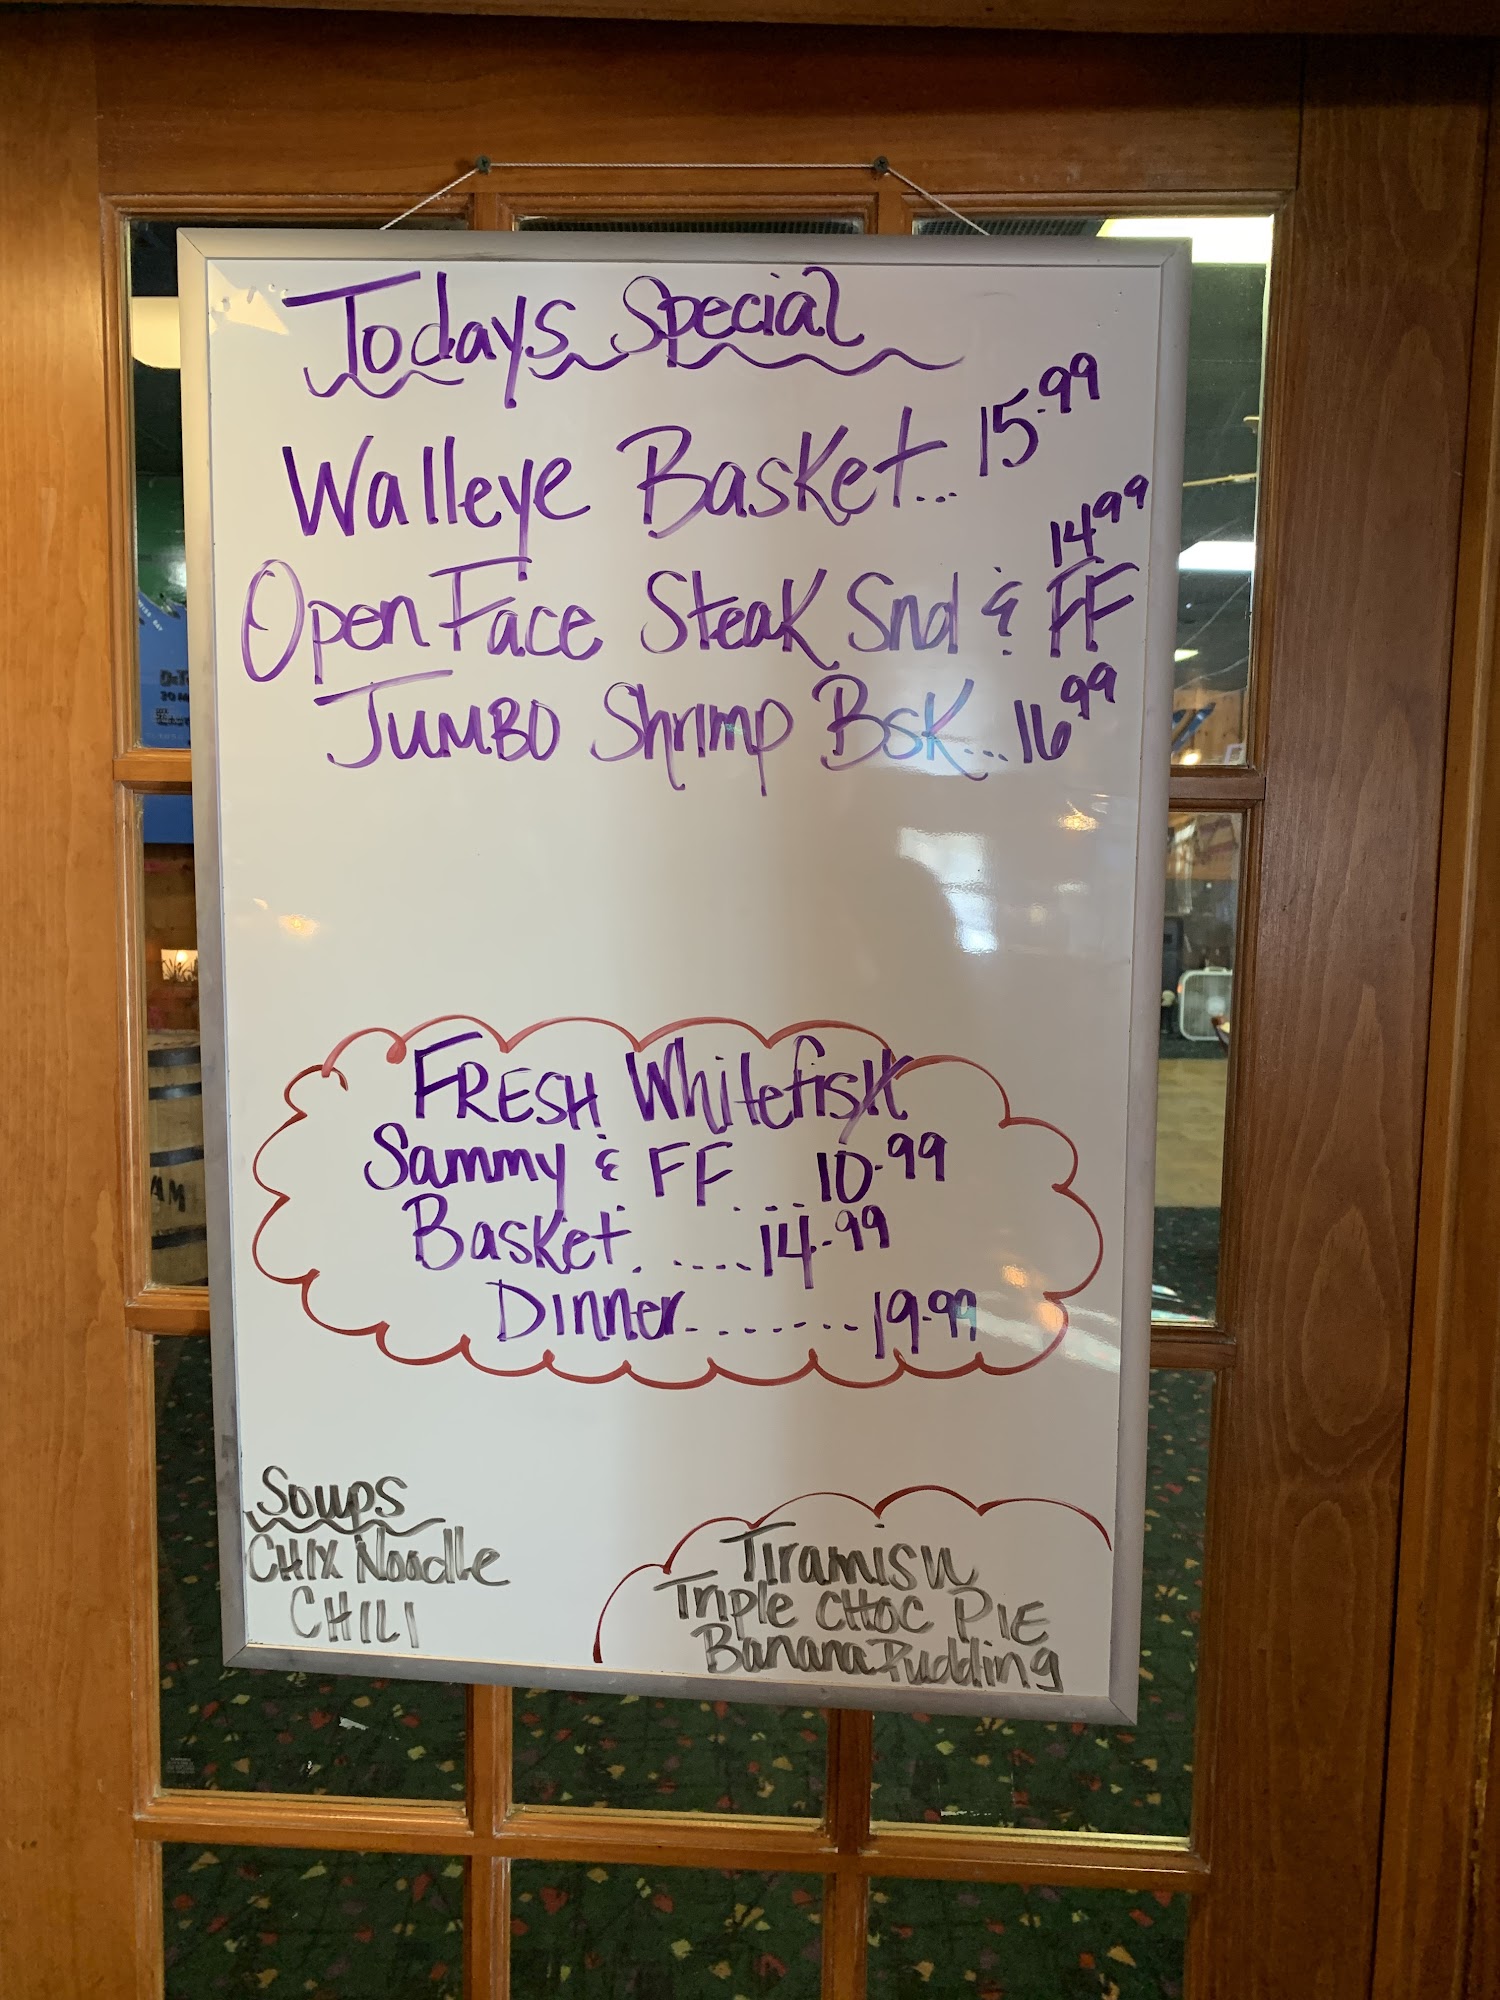 Todays Special
Walleye Basket... 15.99
14.99
Open Face Steak Snd & FF
JUMBO Shrimp BSK... 16.99
FRESH Whitefish
Sammy & FF.... 10.99
Basket. .....14.99
Dinner........19.99
Soups
CHIX Noodle
CHILI
Tiramisu
Triple CHOC PIE
Banana Pudding
AM